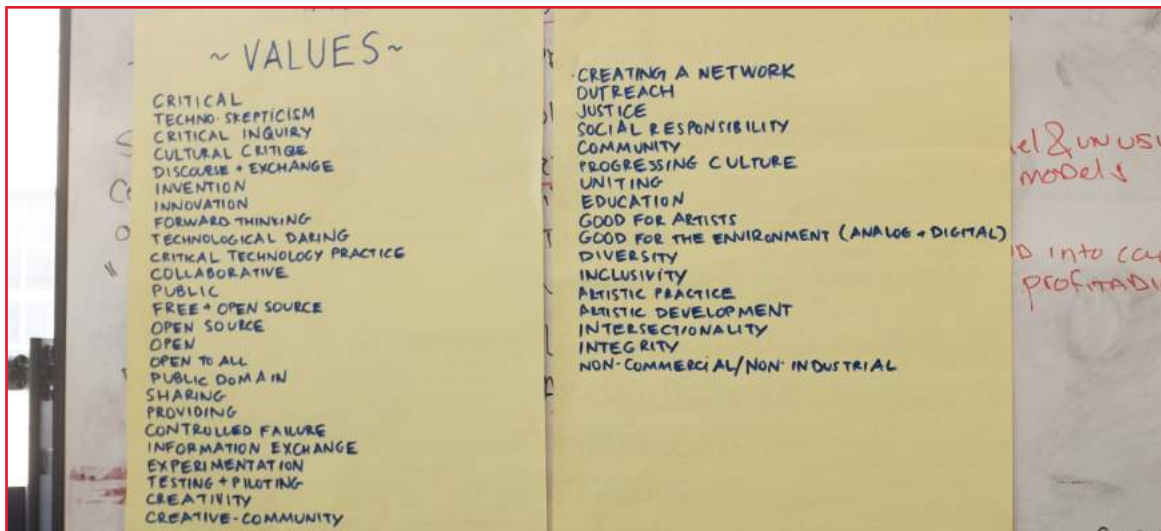 ~ VALUES ~
CRITICAL
TECHNO-SKEPTICISM
CRITICAL INQUIRY
CULTURAL CRITIQE
DISCOURSE + EXCHANGE
INVENTION
INNOVATION
FORWARD THINKING
TECHNOLOGICAL DARING
CRITICAL TECHNOLOGY PRACTICE
COLLABORATIVE
PUBLIC
FREE + OPEN SOURCE
OPEN SOURCE
OPEN
OPEN TO ALL
PUBLIC DOMAIN
SHARING
PROVIDING
CONTROLLED FAILURE
INFORMATION EXCHANGE
EXPERIMENTATION
TESTING + PILOTING
CREATIVITY
CREATIVE-COMMUNITY
CREATING A NETWORK
OUTREACH
JUSTICE
SOCIAL RESPONSIBILITY
COMMUNITY
PROGRESSING CULTURE
UNITING
EDUCATION
GOOD FOR ARTISTS
GOOD FOR THE ENVIRONMENT (ANALOG + DIGITAL)
DIVERSITY
INCLUSIVITY
ARTISTIC PRACTICE
ARTISTIC DEVELOPMENT
INTERSECTIONALITY
INTEGRITY
NON-COMMERCIAL/NON-INDUSTRIAL
models
into